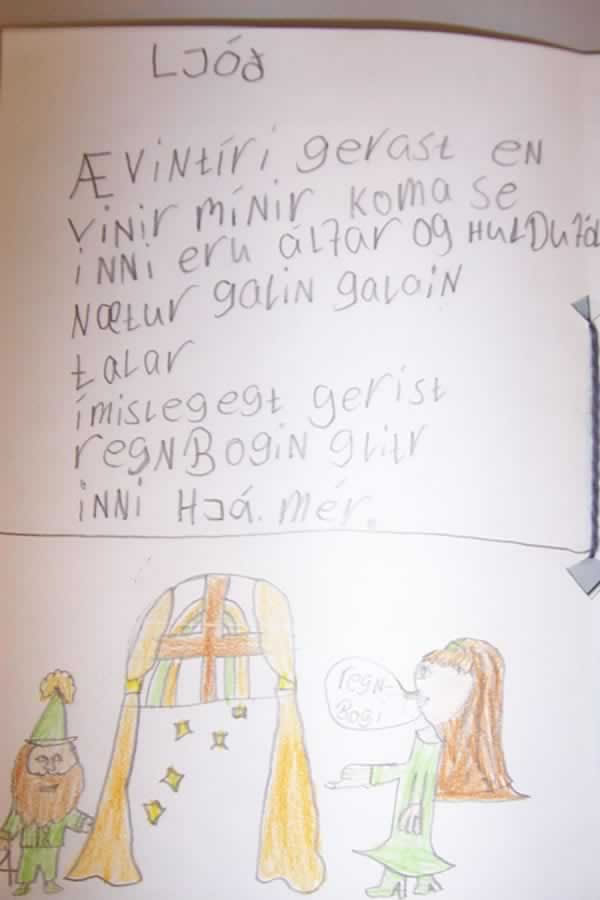 LJÓÐ
ÆVINtíri gerast eN
VINIr míNir koma se
iNNi eru álfar og HuLDufól
Nætur galiN galaiN
talar
ímislegegt gerist
regNBogiN glitr
iNNi HJá. mér.
regN-
Bogi